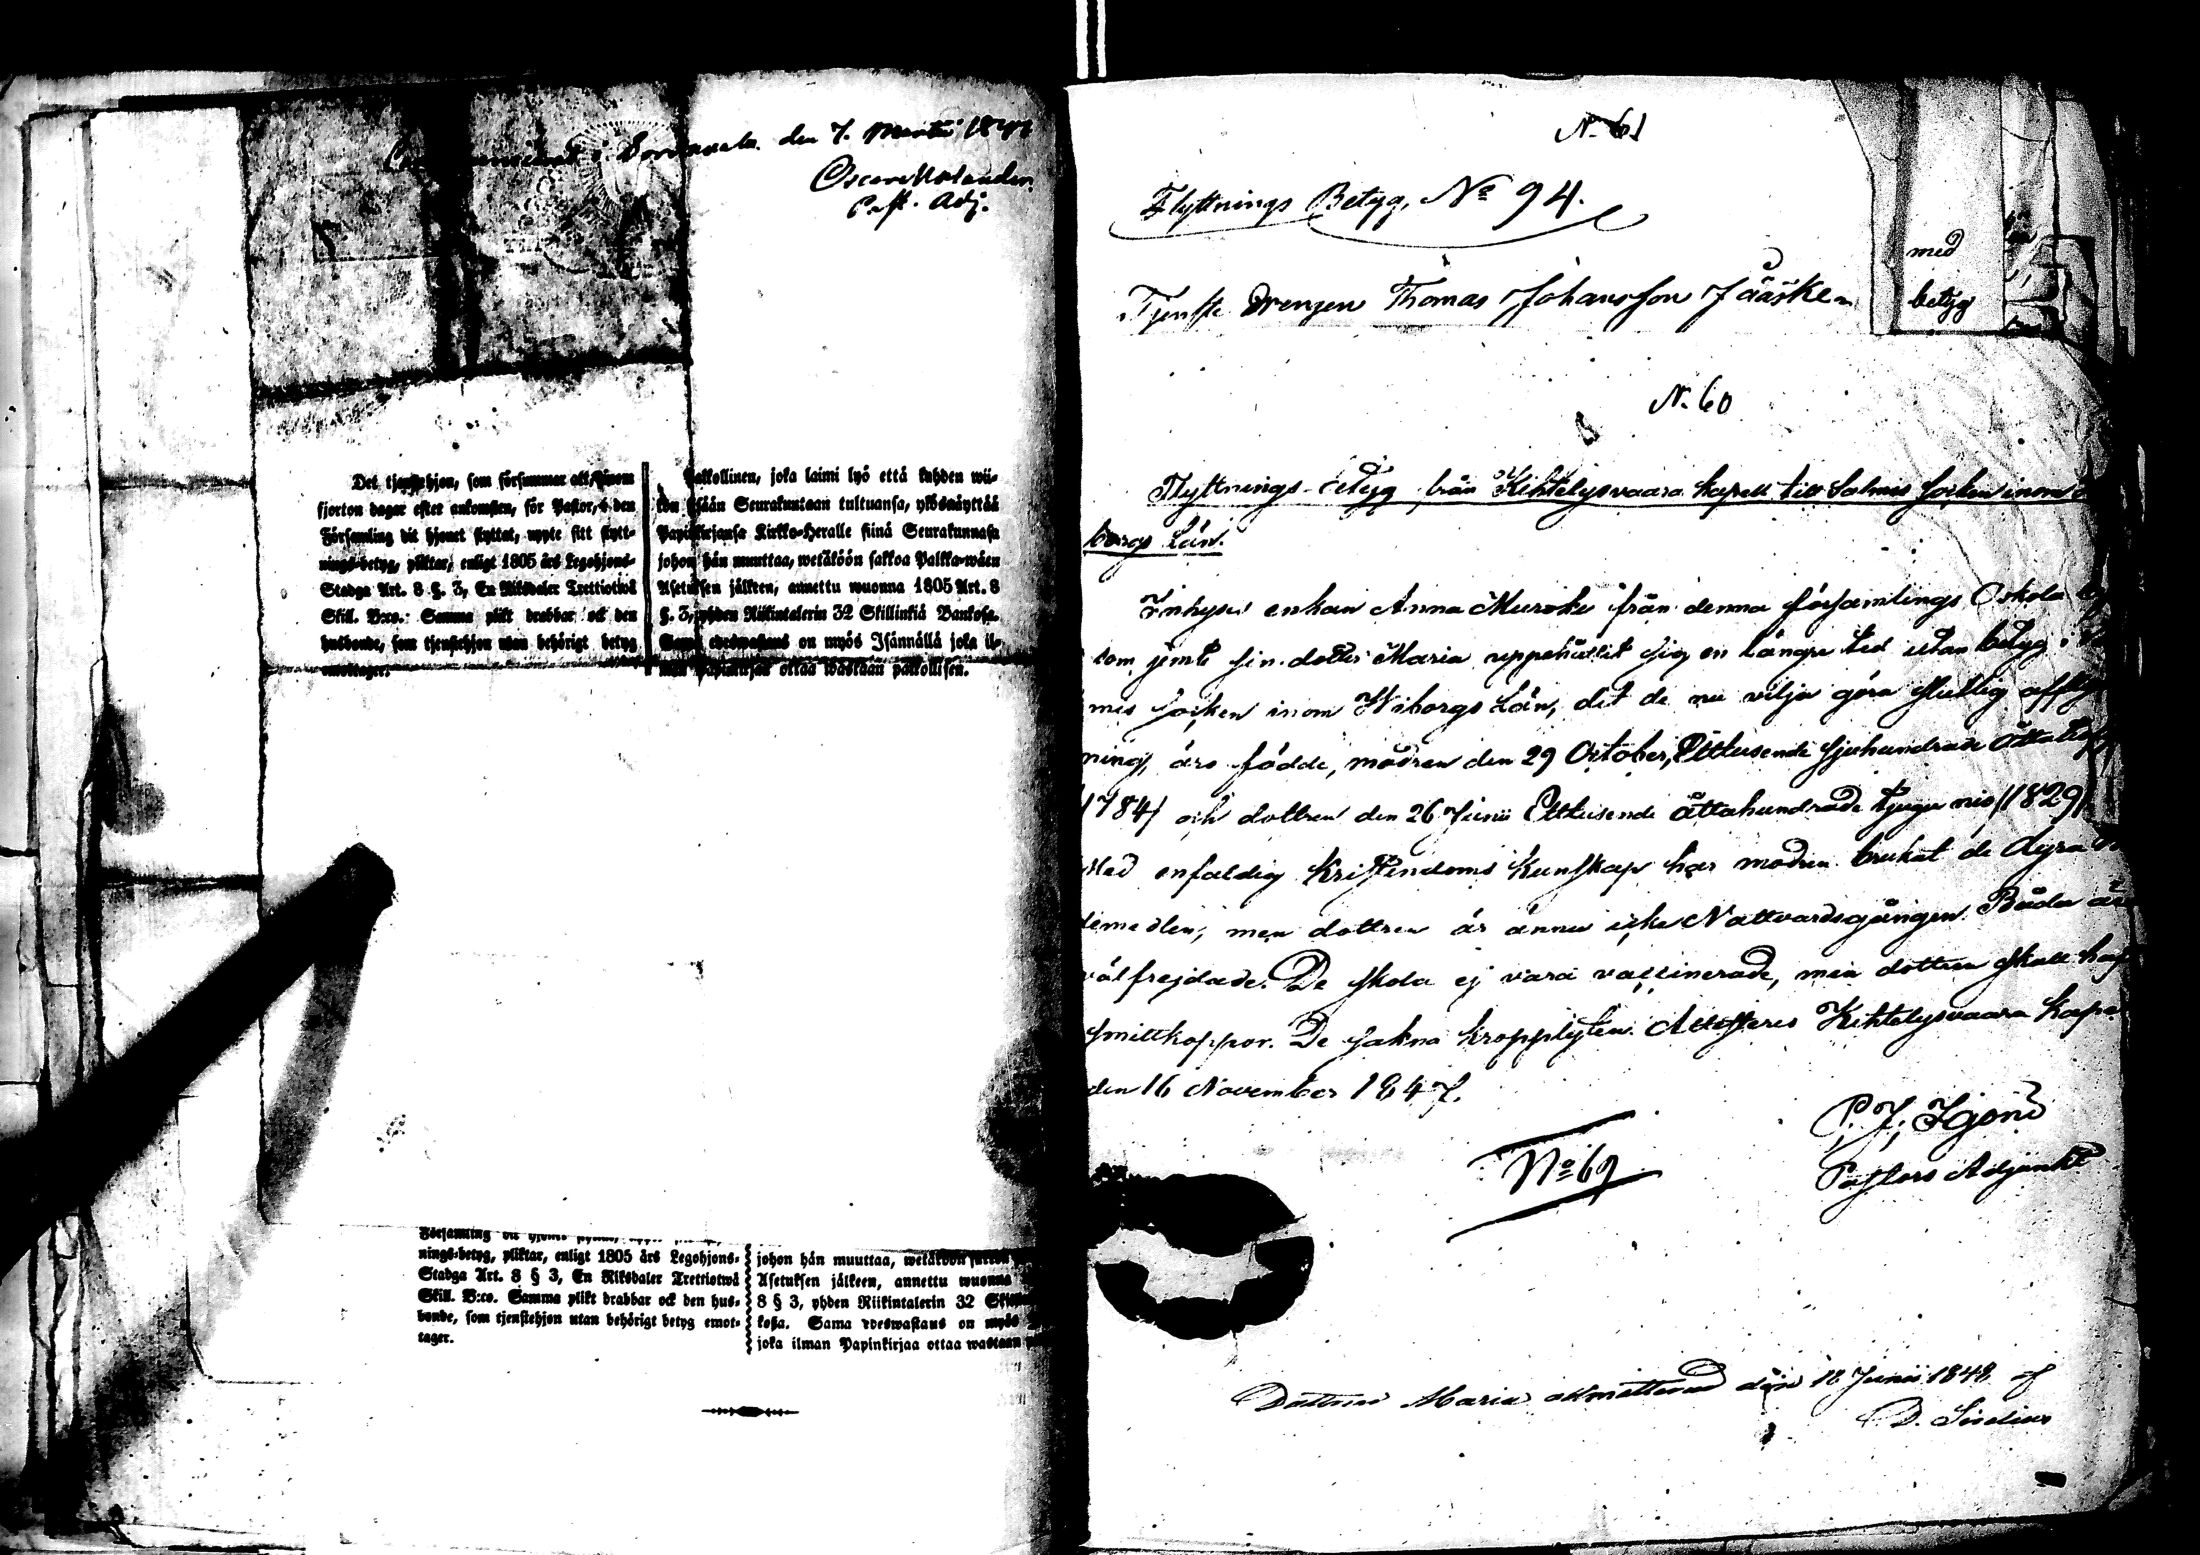 den 7. Martii 18
Past. Adj.
Det tjenstehjon, som försummar att, inom
fjorton dagar efter ankomsten, för Pastor, i den
Församling dit hjonet flyttat, uppte sitt flytt-
nings-betyg, pliktar, enligt 1805 års Legohjons-
Stadga Art. 8 §. 3, En Riksdaler Trettiotwå
Skill. B:co. Samma plikt drabbar ock den
husbonde, som tjenstehjon utan behörigt betyg
emottager.
Palkollinen, joka laimi lyö että kahden wii-
kon sisään Seurakuntaan tultuansa, ylösnäyttää
Papinkirjansa Kirkko-Heralle siinä Seurakunnasa
johon hän muuttaa, wetäköön sakkoa Palkka-wäen
Asetuksen jälkeen, annettu wuonna 1805 Art. 8
§. 3, yhden Riikintalerin 32 Skillinkiä Bankosa.
Sama edeswastaus on myös Isännällä joka il-
man Papinkirjaa ottaa wastaan palkollisen.
Församling dit hjonet
nings-betyg, pliktar, enligt 1805 års Legohjons-
Stadga Art. 8 § 3, En Riksdaler Trettiotwå
Skill. B:co. Samma plikt drabbar ock den hus-
bonde, som tjenstehjon utan behörigt betyg emot-
tager.
johon hän muuttaa, wetäköön
Asetuksen jälkeen, annettu wuonna
8 § 3, yhden Riikintalerin 32
kosa. Sama edeswastaus on myös
joka ilman Papinkirjaa ottaa wastaan
N. 61
Flyttnings Betyg, No 94.
Tjenste Drengen Thomas Johansson Jääsken
med
betyg
N. 60
Flyttnings-betyg från Kihtelysvaara kapell till Salmis socken inom
borgs Län.
Inhyses enkan Anna Muroke från denna församlings Oskola
som jemte sin dotter Maria uppehållit sig en längre tid utan betyg i
mis socken inom Wiborgs Län, dit de nu vilja göra slutlig afflytt
ning, äro födde, modren den 29 October, Ettusende sjuhundrade åttatio
(1784) och dottren den 26 Junii Ettusende åttahundrade tjugu nio (1829)
Med enfaldig Kristendoms kunskap har modren brukat de dyra
demedlen, men dottren är ännu icke Nattvardsgången. Båda äro
välfrejdade. De skola ej vara vaccinerade, men dottren skall haft
smittkoppor. De sakna kropplyten. Attesteras Kihtelysvaara Kape
den 16 November 1847.
Pastors Adjunkt
No 69
Dottren Maria admitterad den 18 Junii 1848 af
D. Sirelius